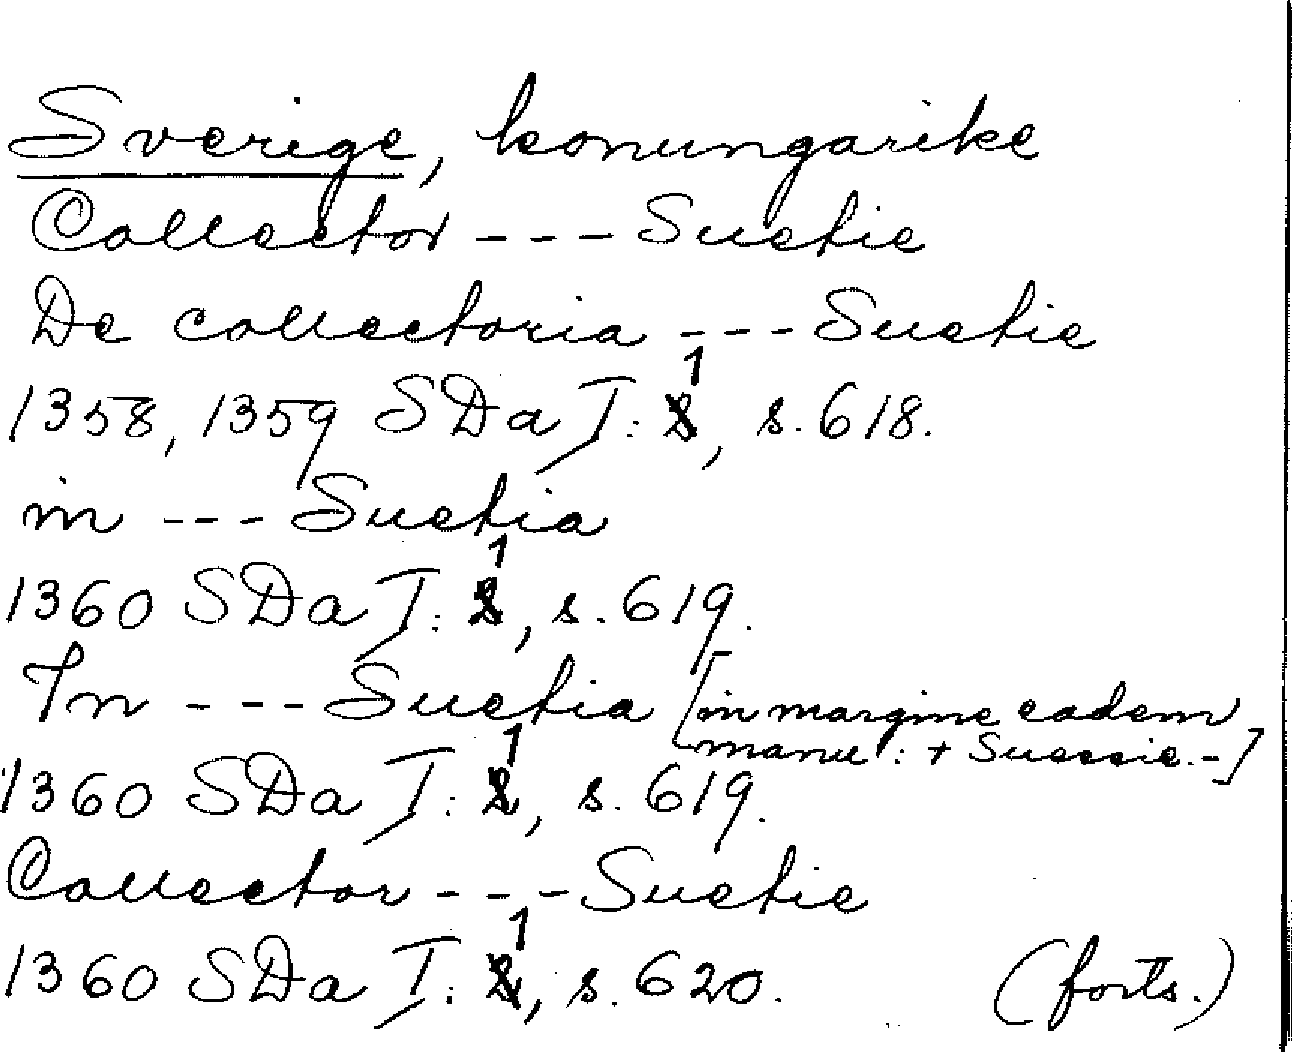 Sverige, konungarike
Collector --- Suetie
De collectoria --- Suetie
1358, 1359 SDa I: 1, s. 618.
in --- Suetia
1360 SDa I: 1, s. 619.
In --- Suetia [in margine eadem
manu: + Suessie.-]
1360 SDa I: 1, s. 619.
Collector --- Suetie
1360 SDa I: 1, s. 620. (forts.)